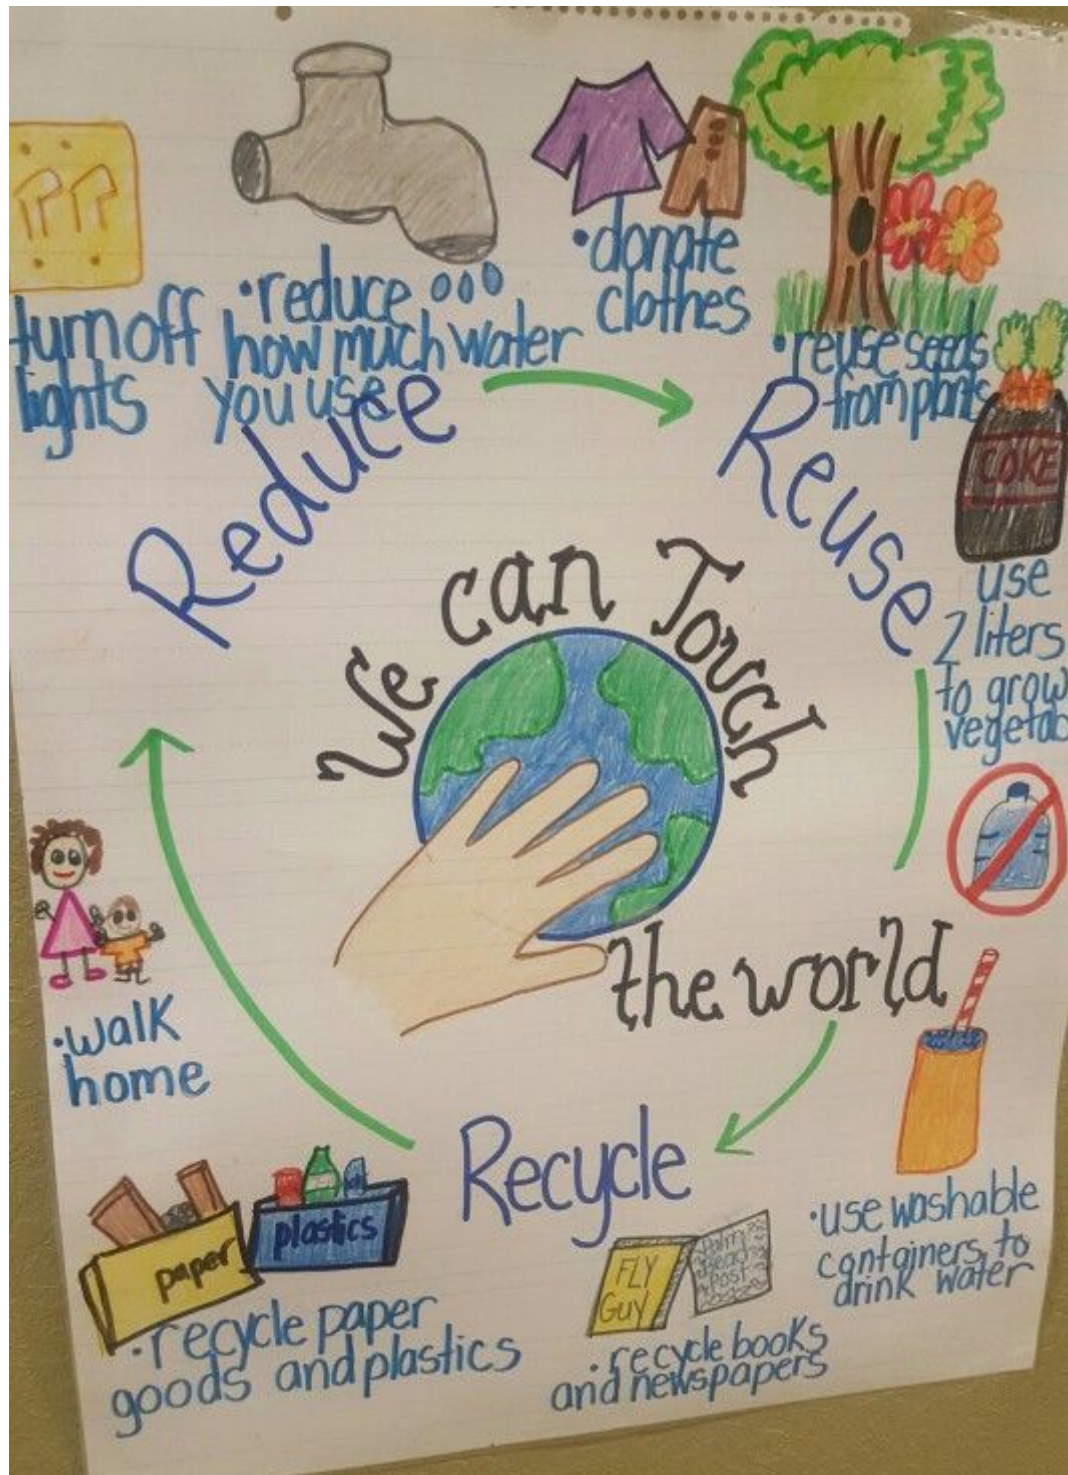 turn off
lights
•reduce
how much water
you use
•donate
clothes
•reuse seeds
from plants
COKE
use
2 liters
to grow
vegetab
Reduce
Reuse
We can Touch
the world
•walk
home
Recycle
paper
plastics
•recycle paper
goods and plastics
FLY
GUY
Palm
Beach
Post
•recycle books
and newspapers
•use washable
containers to
drink water